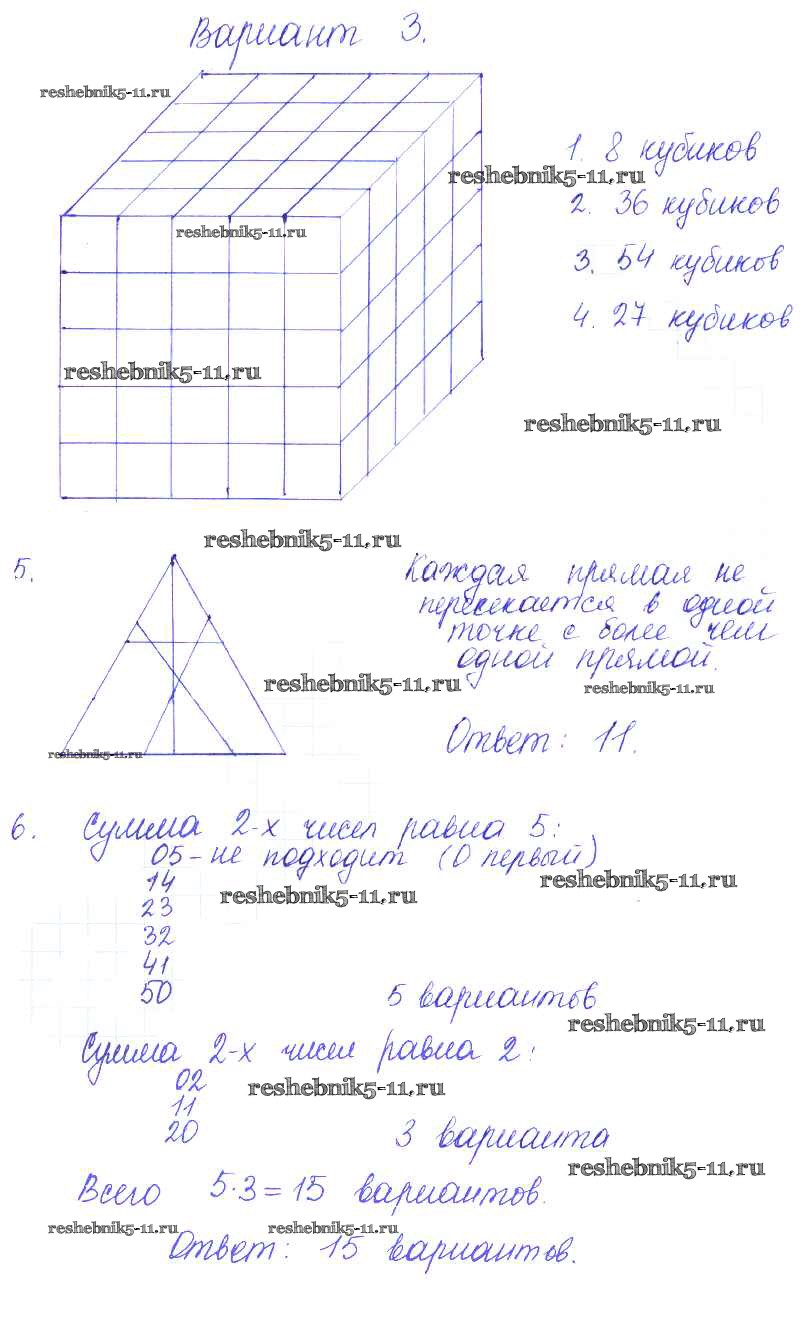 Вариант 3.
reshebnik5-11.ru
1. 8 кубиков
reshebnik5-11.ru
2. 36 кубиков
reshebnik5-11.ru
3. 54 кубиков
4. 27 кубиков
reshebnik5-11.ru
reshebnik5-11.ru
reshebnik5-11.ru
5.
Каждая прямая не
пересекается в одной
точке с более чем
одной прямой.
reshebnik5-11.ru
reshebnik5-11.ru
Ответ: 11.
reshebnik5-11.ru
6. Сумма 2-х чисел равна 5:
05 - не подходит (0 первый)
reshebnik5-11.ru
14
reshebnik5-11.ru
23
32
41
50 5 вариантов
reshebnik5-11.ru
Сумма 2-х чисел равна 2:
02
reshebnik5-11.ru
11
20 3 варианта
reshebnik5-11.ru
Всего 5·3=15 вариантов.
reshebnik5-11.ru reshebnik5-11.ru
Ответ: 15 вариантов.